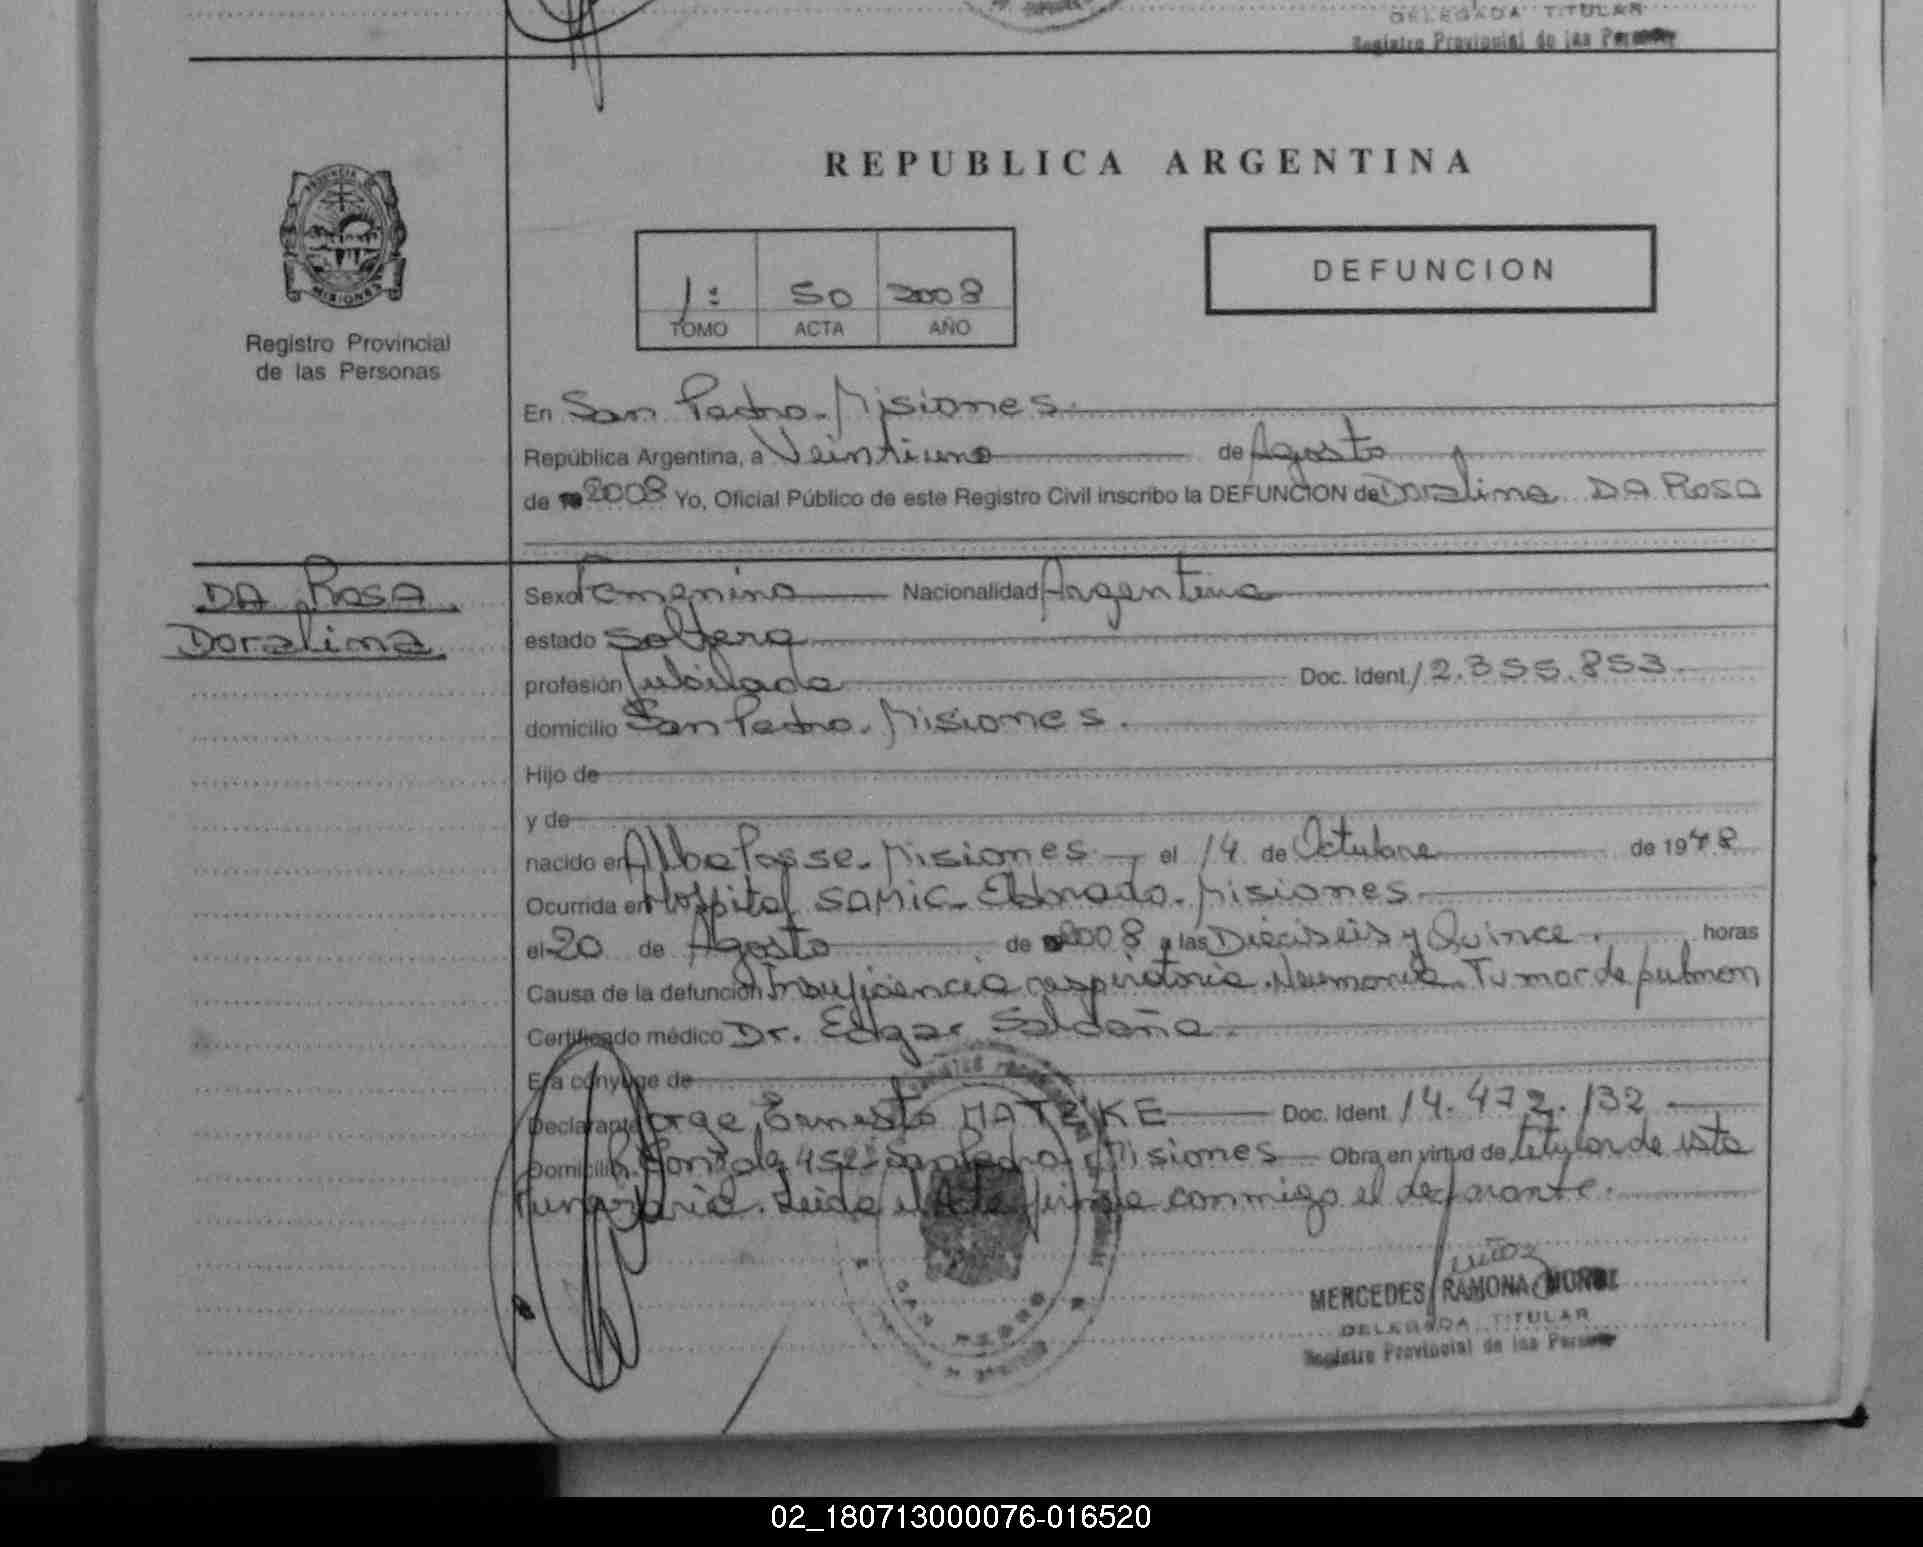 DELEGADA TITULAR
Registro Provincial de las
REPUBLICA ARGENTINA
PROVINCIA DE
MISIONES
DEFUNCION
1: 50 2008
TOMO ACTA AÑO
Registro Provincial
de las Personas
En San Pedro. Misiones.
República Argentina, a Veintiuno de Agosto
de 2008 Yo, Oficial Público de este Registro Civil inscribo la DEFUNCION de Doralima DA ROSA
DA ROSA
Doralima
Sexo Femenino Nacionalidad Argentina
estado Soltera
profesión Jubilada Doc. Ident. 12.355.853
domicilio San Pedro. Misiones.
Hijo de
y de
nacido en Alba Posse. Misiones el 14 de Octubre de 1948
Ocurrida en Hospital SAMIC. Eldorado. Misiones
el 20 de Agosto de 2008 a las Dieciseis y Quince. horas
Causa de la defunción Insuficiencia respiratoria. Neumonia. Tumor de pulmon
Certificado médico Dr. Edgar Saldaña.
Era cónyuge de
Declarante Jorge Ernesto MATZKE Doc. Ident. 14.472.132
Domicilio 452 San Pedro. Misiones Obra en virtud de titular de esta
Funeraria. Leida el Acta firma conmigo el declarante.
SAN PEDRO
MERCEDES RAMONA
DELEGADA TITULAR
Registro Provincial de las
02_180713000076-016520